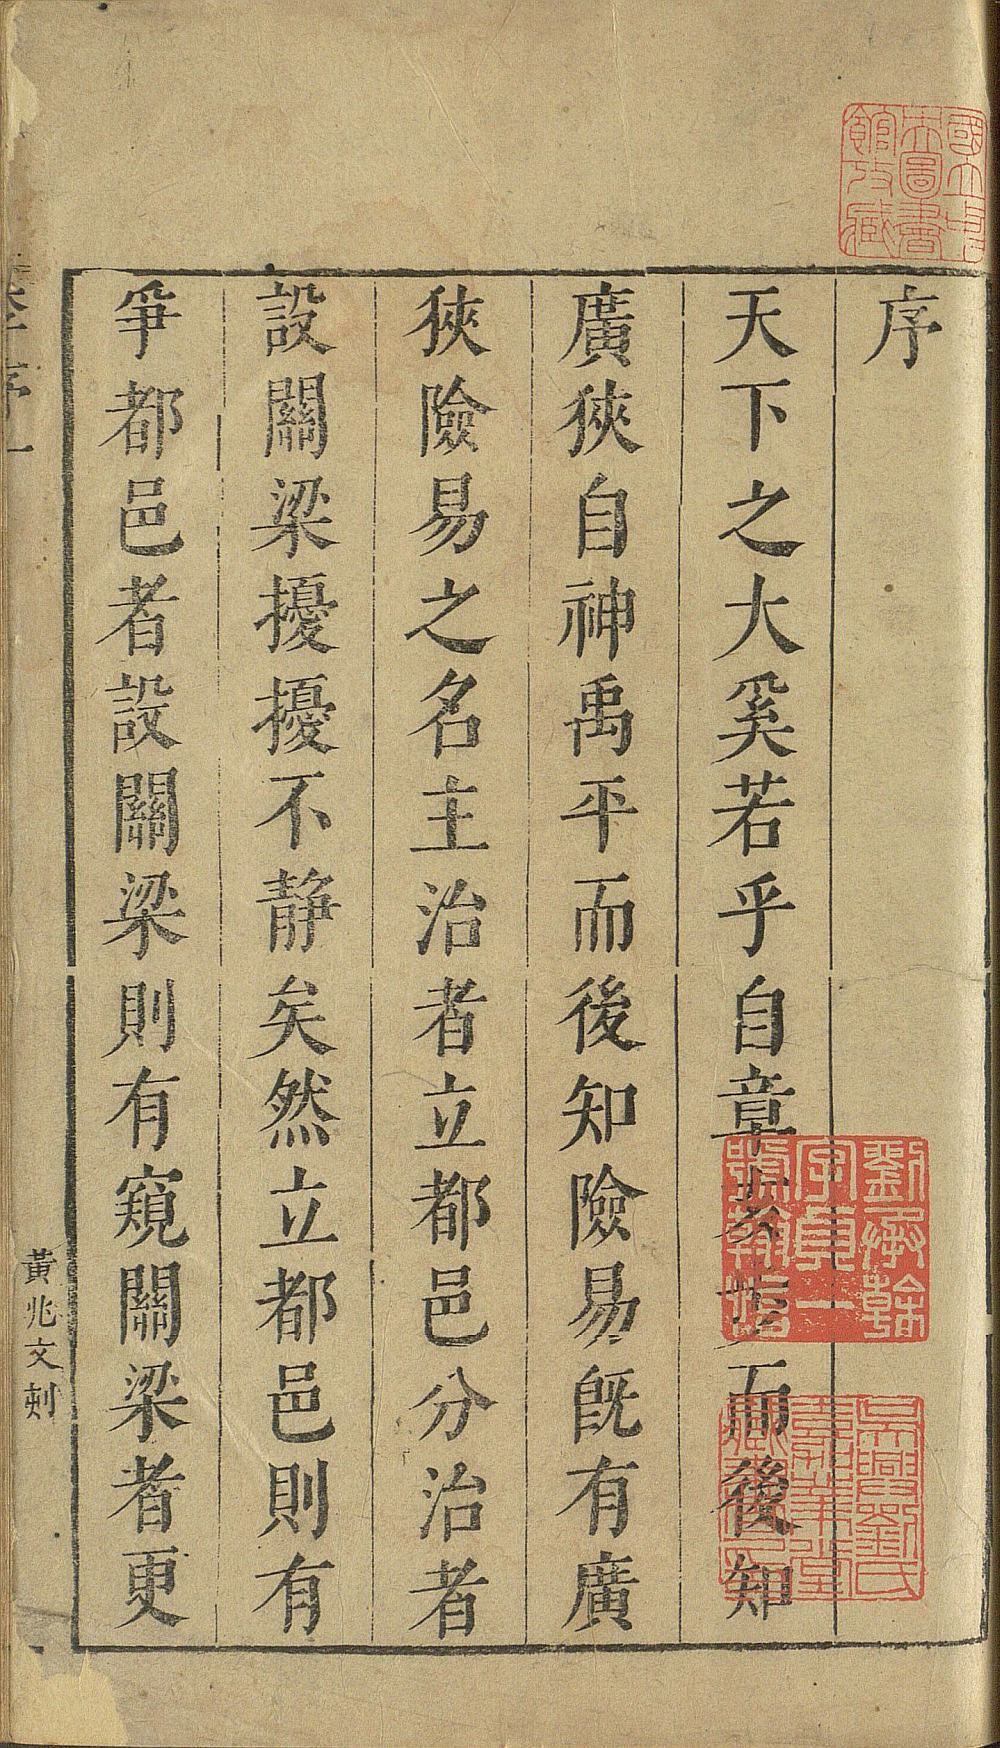 序
天下之大奚若乎自章亥步而後知
廣狹自神禹平而後知險易旣有廣
狹險易之名主治者立都邑分治者
設關梁擾擾不静矣然立都邑則有
爭都邑者設關梁則有窺關梁者更
序一
黃兆文刻
國立中
央圖書
館攷藏
劉承幹
字貞一
號翰怡
吳興劉氏
嘉業堂
藏書印